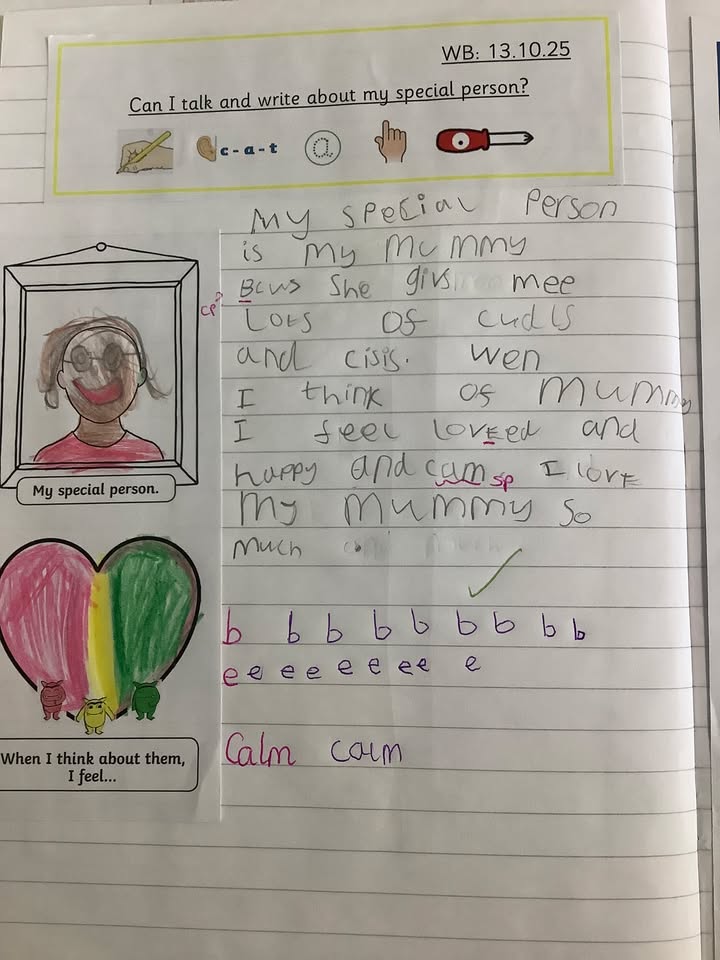 WB: 13.10.25
Can I talk and write about my special person?
c-a-t
a
My special Person
is my Mummy
Bcws She givs mee
cp?
Lots of cudls
and cisis. wen
I think of mummy
I feel loveed and
happy and cam sp I love
My Mummy So
much
My special person.
b b b b b b b b b
e e e e e e e e e
When I think about them,
I feel...
Calm calm